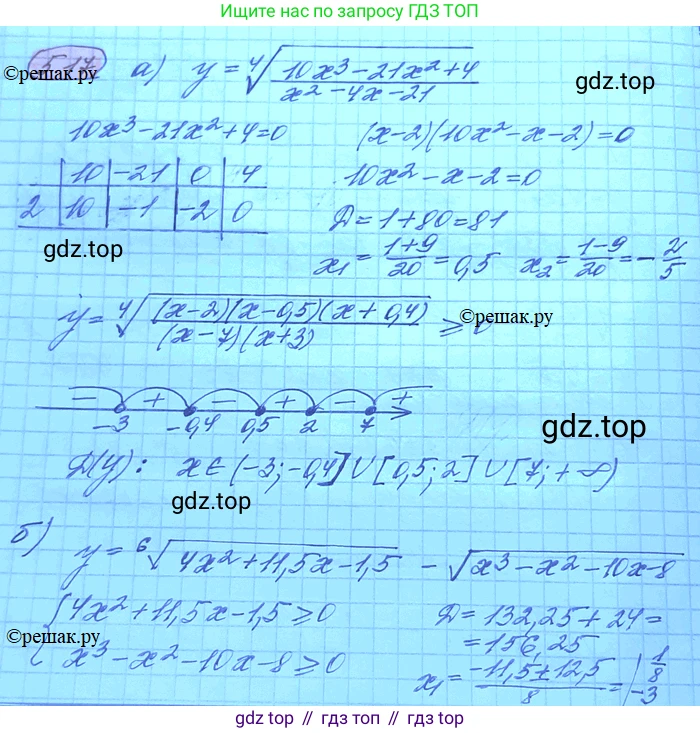 Ищите нас по запросу ГДЗ ТОП
517
©решак.ру
а) y = ⁴√((10x³ − 21x² + 4)/(x² − 4x − 21))
gdz.top
10x³ − 21x² + 4 = 0
(x − 2)(10x² − x − 2) = 0
10 | −21 | 0 | 4
2 | 10 | −1 | −2 | 0
10x² − x − 2 = 0
D = 1 + 80 = 81
gdz.top
x₁ = (1+9)/20 = 0,5 x₂ = (1−9)/20 = −2/5
y = ⁴√((x − 2)(x − 0,5)(x + 0,4)/((x − 7)(x + 3))) ⩾ 0
©решак.ру
− + − + − +
−3 −0,4 0,5 2 7
gdz.top
D(y): x ∈ (−3; −0,4] ∪ [0,5; 2] ∪ [7; +∞)
gdz.top
б)
y = ⁶√(4x² + 11,5x − 1,5) − √(x³ − x² − 10x − 8)
{4x² + 11,5x − 1,5 ⩾ 0
©решак.ру
x³ − x² − 10x − 8 ⩾ 0
D = 132,25 + 24 =
= 156,25
x₁ = (−11,5 ± 12,5)/8 = | 1/8
−3
gdz.top // гдз топ // gdz.top